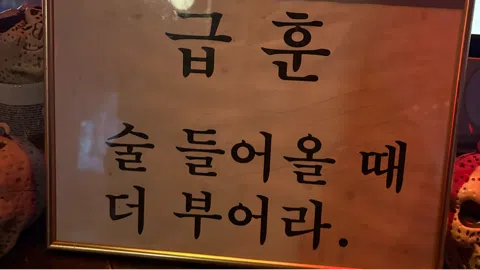 급 훈
술 들어올 때
더 부어라.